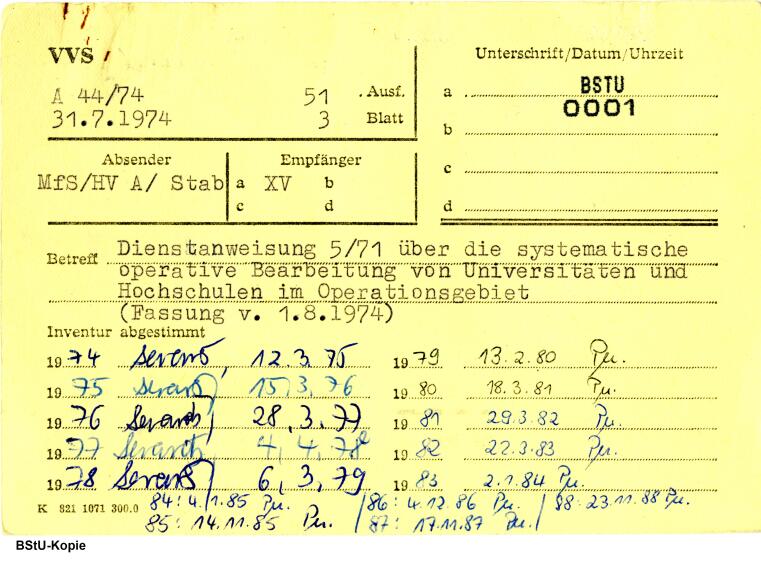 VVS
A 44/74 51 . Ausf.
31.7.1974 3 Blatt
Unterschrift/Datum/Uhrzeit
a BSTU
0001
b
c
d
Absender Empfänger
MfS/HV A/ Stab a XV b
c d
Betreff Dienstanweisung 5/71 über die systematische
operative Bearbeitung von Universitäten und
Hochschulen im Operationsgebiet
(Fassung v. 1.8.1974)
Inventur abgestimmt
1974 12.3.75 1979 13.2.80
1975 15.3.76 1980 18.3.81
1976 28.3.77 1981 29.3.82
1977 4.4.78 1982 22.3.83
1978 6.3.79 1983 2.1.84
84: 4.1.85 86: 4.12.86 88: 23.11.88
K 821 1071 300.0 85: 14.11.85 87: 17.11.87
BStU-Kopie